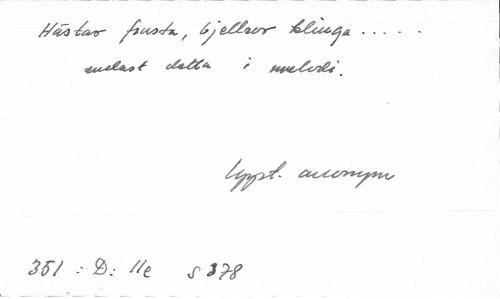 Hästar frusta, bjellror klinga . . . . .
endast detta i melodi.
Uppt. anonym
351 : D: 11e s 378